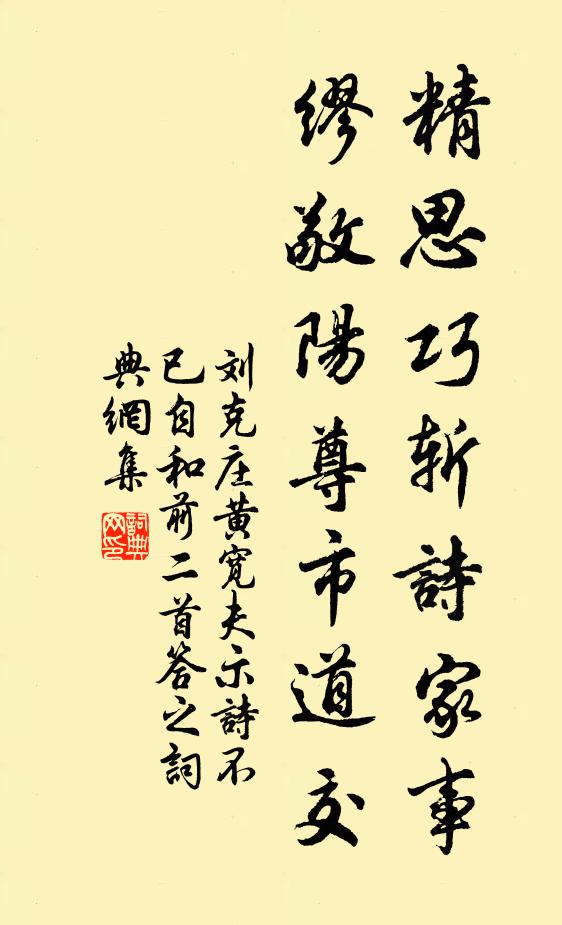 精思巧斩詩家事
繆敬陽尊市道交
刘克庄黄宽夫示詩不
已自和前二首答之詞
典網集
詞典網印